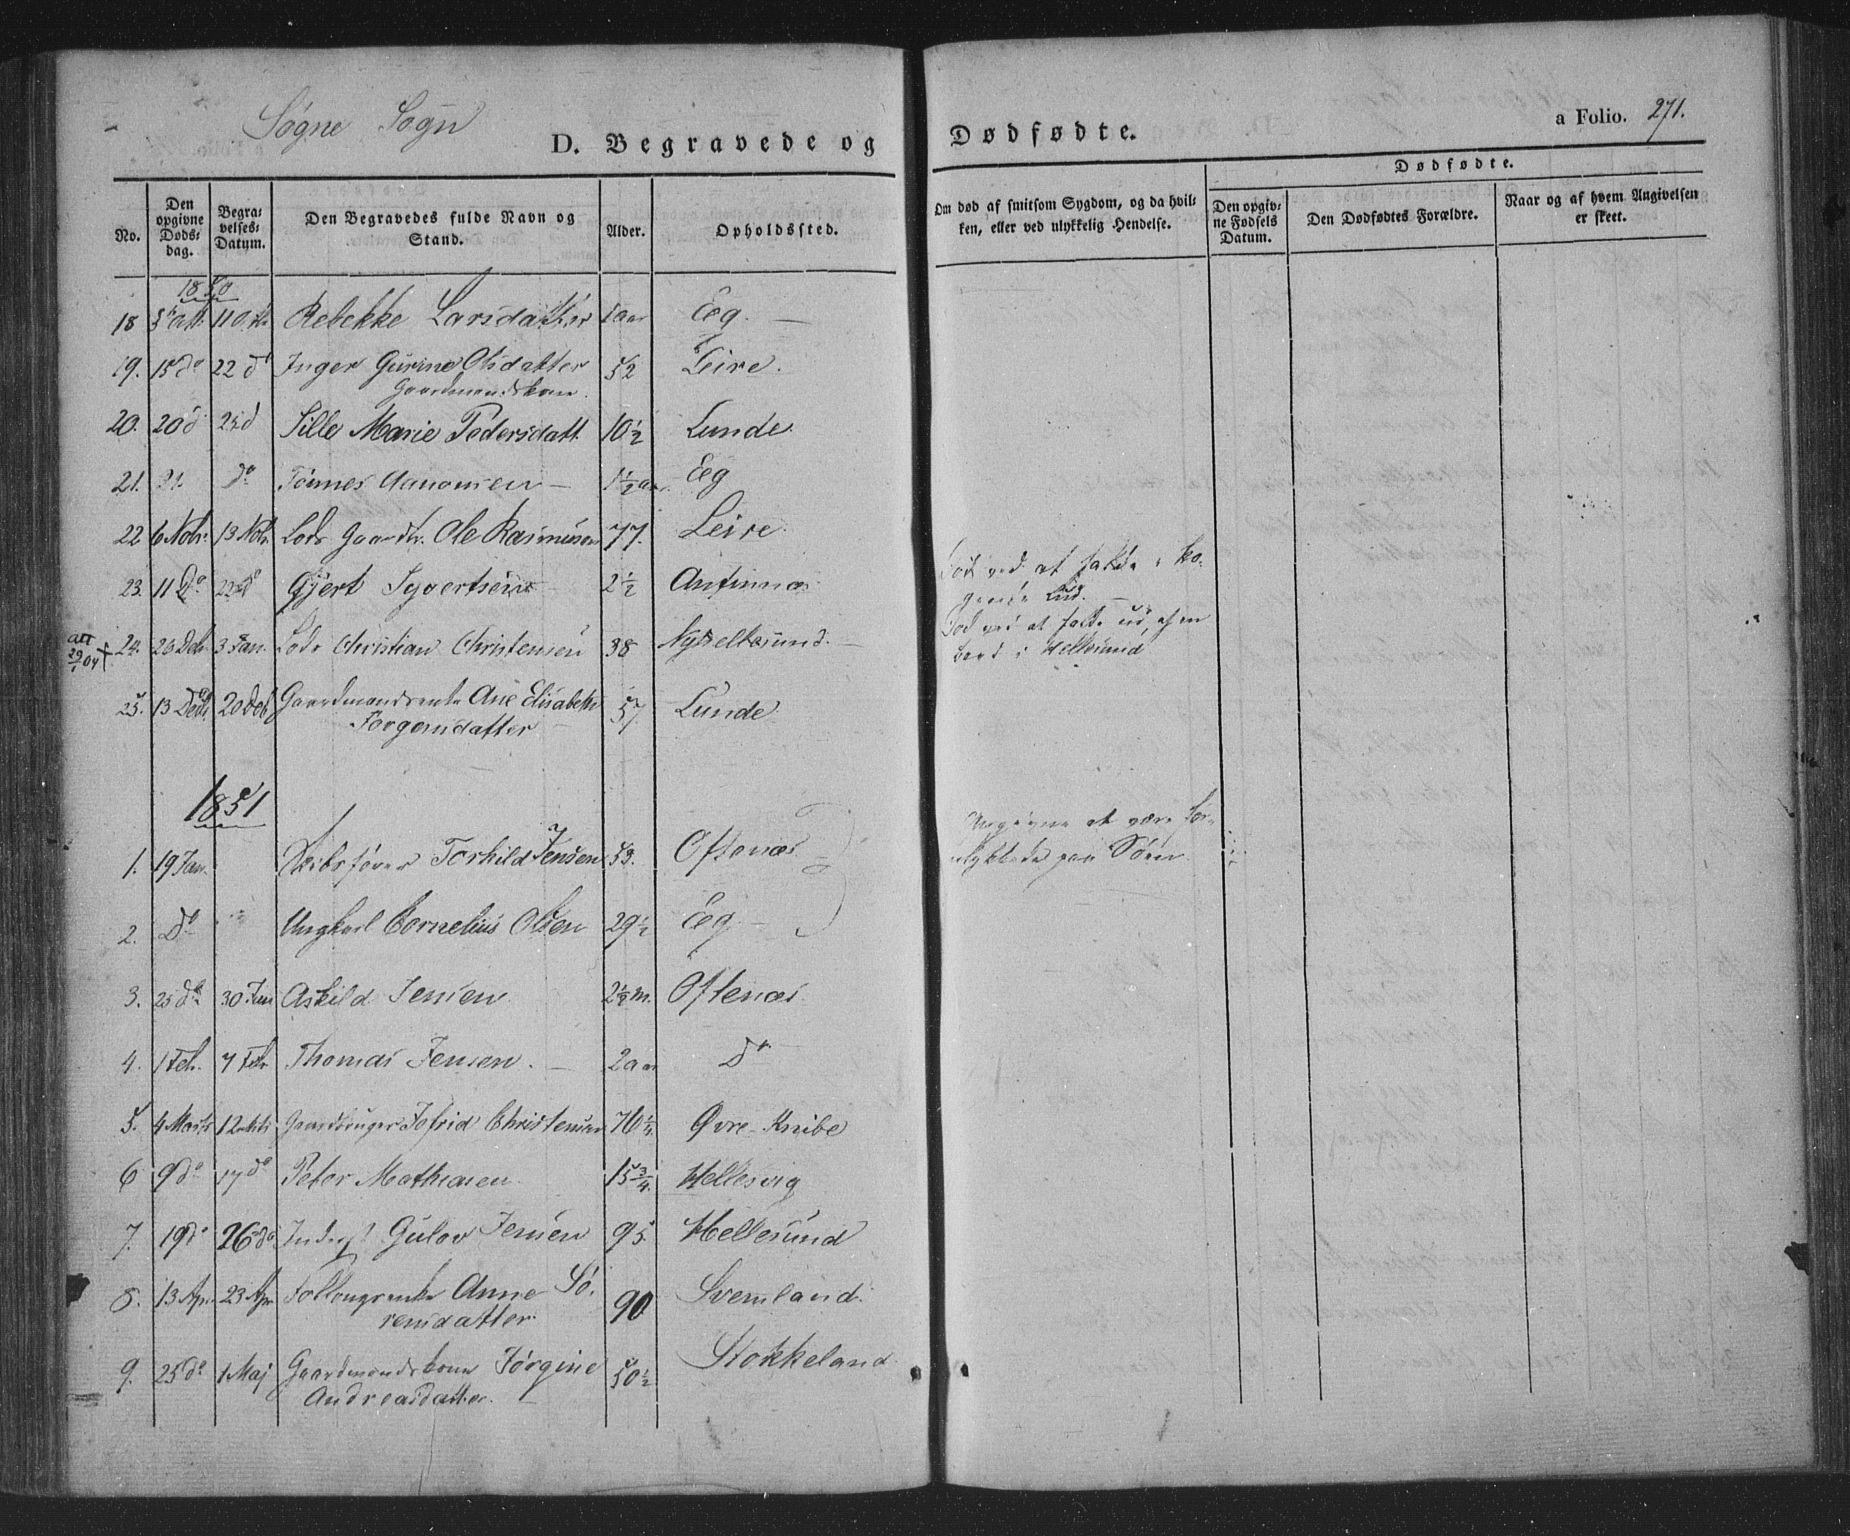 Søgne Sogn
D. Begravede og Dødfødte.
a Folio. 271.
No.
Den opgivne Døds-dag.
Begra-velses-Datum.
Den Begravedes fulde Navn og Stand.
Alder.
Opholdssted.
Om død af smitsom Sygdom, og da hvil-
ken, eller ved ulykkelig Hendelse.
Dødfødte.
Den opgiv-ne Fødsels Datum.
Den Dødfødtes Forældre.
Naar og af hvem Angivelsen er skeet.
1850
18 Oct. 11 Oct. Rebekke Larsdatter 1 aar Eeg.
19. 15 do 22 do Inger Gurine Olsdatter 52 Leire.
Gaardmandskone.
20. 20 d 25 d Sille Marie Pedersdatt. 10½ Lunde.
21. 21. do Tønnes Aanonsen 1½ aar Eeg
22 6 Nobr. 13 Nobr. Lods Gaardbr. Ole Rasmusson 77. Leire.
23. 11 Do 22 do Gjert Syvertsen 2½ Amfinnæs Død ved at falde i ko-
gende Lud.
24. 26 Deb. 3 Jan. Lods Christian Christensen 38 Ny Hellesund. Død ved at falde ud af en
Baad i Hellesund
att 29/1 04 †
25. 13 Deb. 20 Deb. Gaardmandsenke Ane Elisabeth 57 Lunde
Jørgensdatter
1851
1. 19 Jan. Skibsfører Torkild Jensen 53. Oftenæs Angivne at være for-
ulykkede paa Søen.
2. Do Ungkarl Cornelius Olsen 29½ Eeg
3. 25 do 30 Jan Askild Jensen 2½ m. Oftenæs
4. 1 Feb. 7 Feb Thomas Jensen. 2 aar do
5. 4 Marts 12 Mts Gaardbruger Jofrid Christensen 76¼ Øvre Knibe
6 9 do 17 do Peter Mathiasen 15¾. Hellesvig
7. 19 do 26 do Inderst Gulov Jensen 95 Hellesund
8. 13 Apr. 23 Apr Føllougsenke Anne Sø- 90 Svemland.
rensdatter
9. 25 do 1 Maj Gaardmandskone Jørgine 50½ Stokkeland
Andreasdatter.